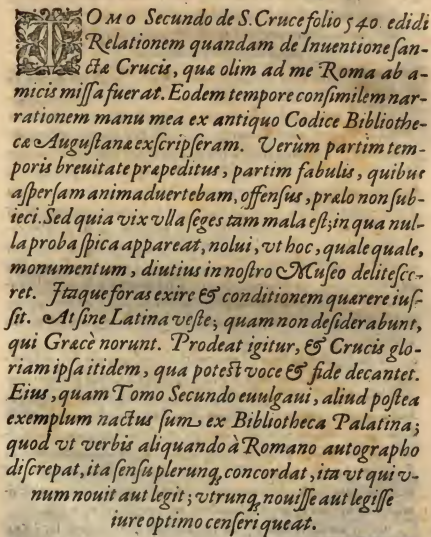 TOMO Secundo de S. Cruce folio 540 edidi
Relationem quandam de Inuentione san-
ctæ Crucis, quæ olim ad me Roma ab a-
micis missa fuerat. Eodem tempore consimilem nar-
rationem manu mea ex antiquo Codice Bibliothe-
cæ Augustanæ exscripseram. Verùm partim tem-
poris breuitate præpeditus, partim fabulis, quibus
aspersam animaduertebam, offensus, prælo non sub-
ieci. Sed quia vix vlla seges tam mala est; in qua nul-
la proba spica appareat, nolui, vt hoc, quale quale,
monumentum, diutius in nostro Museo delitesce-
ret. Itaque foras exire & conditionem quærere ius-
sit. At sine Latina veste; quam non desiderabunt,
qui Græcè norunt. Prodeat igitur, & Crucis glo-
riam ipsa itidem, qua potest voce & fide decantet.
Eius, quam Tomo Secundo euulgaui, aliud postea
exemplum nactus sum, ex Bibliotheca Palatina;
quod vt verbis aliquando à Romano autographo
discrepat, ita sensu plerunq; concordat, ita vt qui v-
num nouit aut legit; vtrunq; nouisse aut legisse
iure optimo censeri queat.